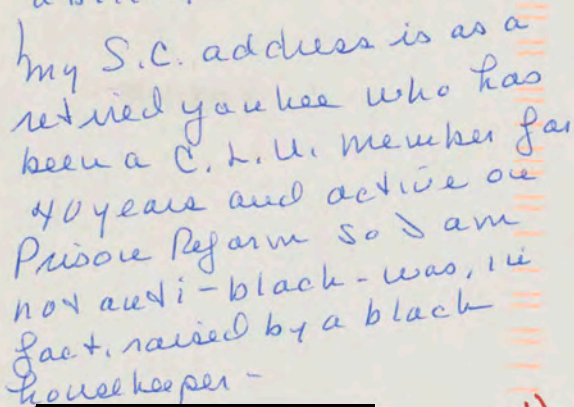 My S.C. address is as a
retired yankee who has
been a C.L.U. member for
40 years and active on
Prison Reform so I am
not anti-black-was, in
fact, raised by a black
housekeeper-